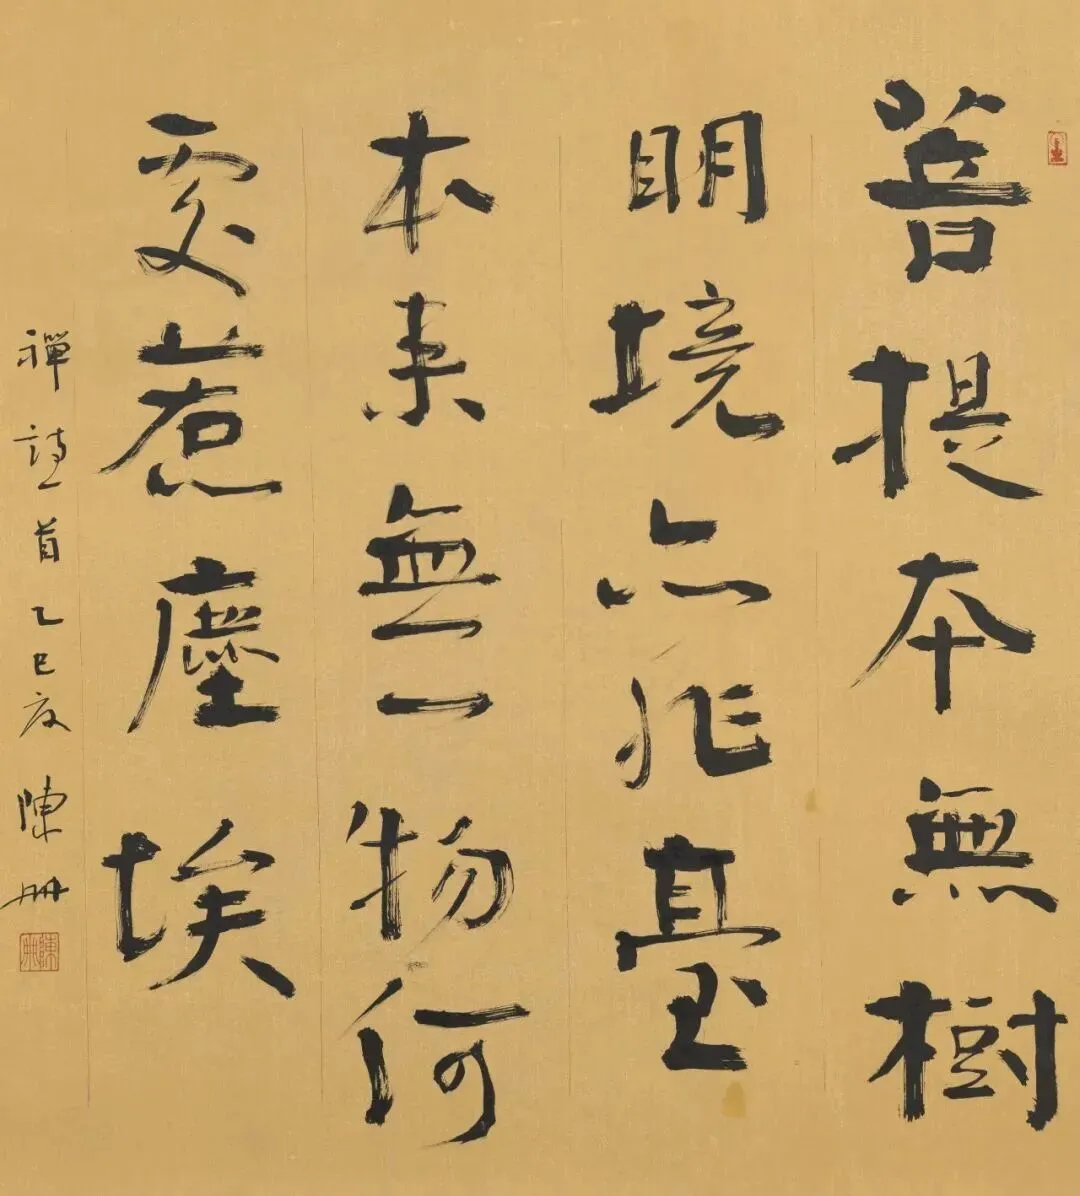 菩提本無樹
明境亦非臺
本来無一物何
處惹塵埃
禪詩一首 乙巳夏 陳冊
陳冊